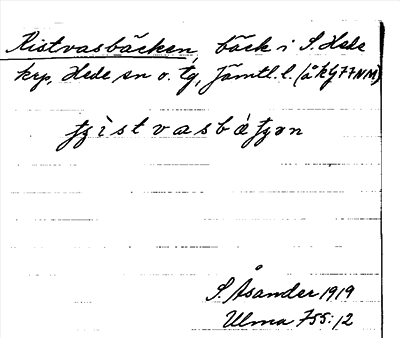 Kistvasbäcken, bäck i S. Hede
krp, Hede sn o. tg, Jämtl. l. (åkg77NM)
ʄʒìstvasbáʄʒən
S. Åsander 1919
Ulma 755:12